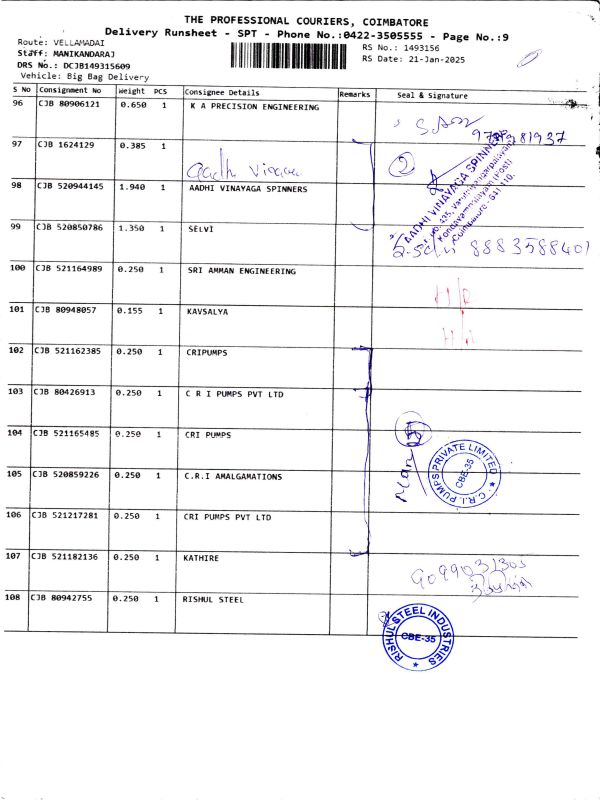 THE PROFESSIONAL COURIERS, COIMBATORE
Delivery Runsheet - SPT - Phone No.:0422-3505555 - Page No.:9
Route: VELLAMADAI
Staff: MANIKANDARAJ
DRS No.: DCJB149315609
Vehicle: Big Bag Delivery
RS No.: 1493156
RS Date: 21-Jan-2025
S No Consignment No Weight PCS Consignee Details Remarks Seal & Signature
96 CJB 80906121 0.650 1 K A PRECISION ENGINEERING
97 CJB 1624129 0.385 1
Aadhi Vinaya
2
98 CJB 520944145 1.940 1 AADHI VINAYAGA SPINNERS
AADHI VINAYAGA SPINNERS
99 CJB 520850786 1.350 1 SELVI
8883588401
100 CJB 521164989 0.250 1 SRI AMMAN ENGINEERING
101 CJB 80948057 0.155 1 KAVSALYA
102 CJB 521162385 0.250 1 CRIPUMPS
103 CJB 80426913 0.250 1 C R I PUMPS PVT LTD
104 CJB 521165485 0.250 1 CRI PUMPS
C.R.I. PUMPS PRIVATE LIMITED
CBE-35
105 CJB 520859226 0.250 1 C.R.I AMALGAMATIONS
106 CJB 521217281 0.250 1 CRI PUMPS PVT LTD
107 CJB 521182136 0.250 1 KATHIRE
108 CJB 80942755 0.250 1 RISHUL STEEL
RISHUL STEEL INDUSTRIES
CBE-35